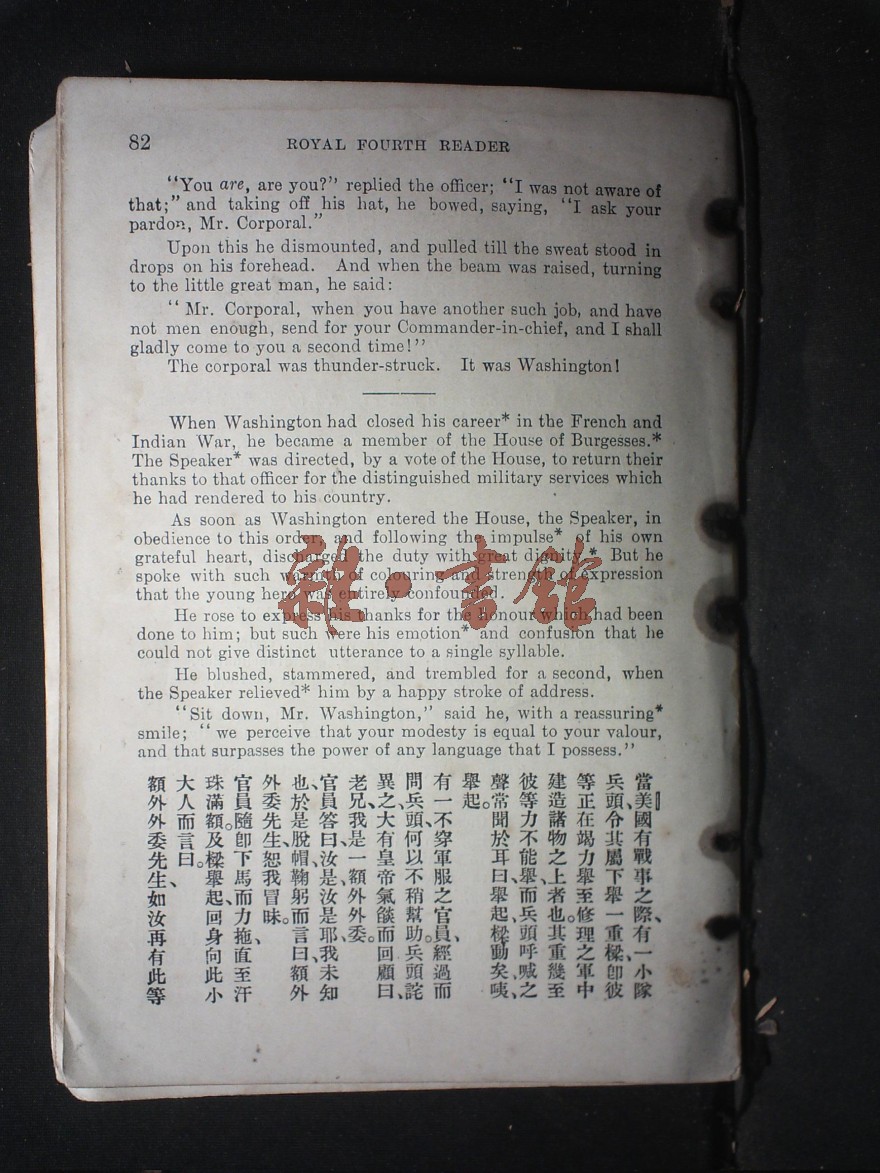 82
ROYAL FOURTH READER
"You are, are you?" replied the officer; "I was not aware of
that;" and taking off his hat, he bowed, saying, "I ask your
pardon, Mr. Corporal."
Upon this he dismounted, and pulled till the sweat stood in
drops on his forehead. And when the beam was raised, turning
to the little great man, he said:
"Mr. Corporal, when you have another such job, and have
not men enough, send for your Commander-in-chief, and I shall
gladly come to you a second time!"
The corporal was thunder-struck. It was Washington!
When Washington had closed his career* in the French and
Indian War, he became a member of the House of Burgesses.*
The Speaker* was directed, by a vote of the House, to return their
thanks to that officer for the distinguished military services which
he had rendered to his country.
As soon as Washington entered the House, the Speaker, in
obedience to this order, and following the impulse* of his own
grateful heart, discharged the duty with great dignity.* But he
spoke with such warmth of colouring and strength of expression
that the young hero was entirely confounded.
He rose to express his thanks for the honour which had been
done to him; but such were his emotion* and confusion that he
could not give distinct utterance to a single syllable.
He blushed, stammered, and trembled for a second, when
the Speaker relieved* him by a happy stroke of address.
"Sit down, Mr. Washington," said he, with a reassuring*
smile; "we perceive that your modesty is equal to your valour,
and that surpasses the power of any language that I possess."
當美國有戰事之際、有一小隊
兵頭、令其屬下舉一重樑、卽彼
等正在竭力舉至修理之軍中
建造諸物之上者也。其重幾至
彼等力不能舉、而兵頭呼喊之
聲常聞於耳曰、舉起、樑動矣、咦、
舉起。
有一不穿軍服之官員、經過而
問兵頭、何以不稍幫助。兵頭詫
異之、大有皇帝氣燄而回顧曰、
老兄、我是一額外外委。
官員答曰、汝是、汝是耶、我未知
也、於是脫帽、鞠躬而言曰、額外
外委先生、恕我冒昧。
官員隨卽下馬、而力拖、直至汗
珠滿額。及樑舉起、回身向此小
大人而言曰。
額外外委先生、如汝再有此等
雜·書館